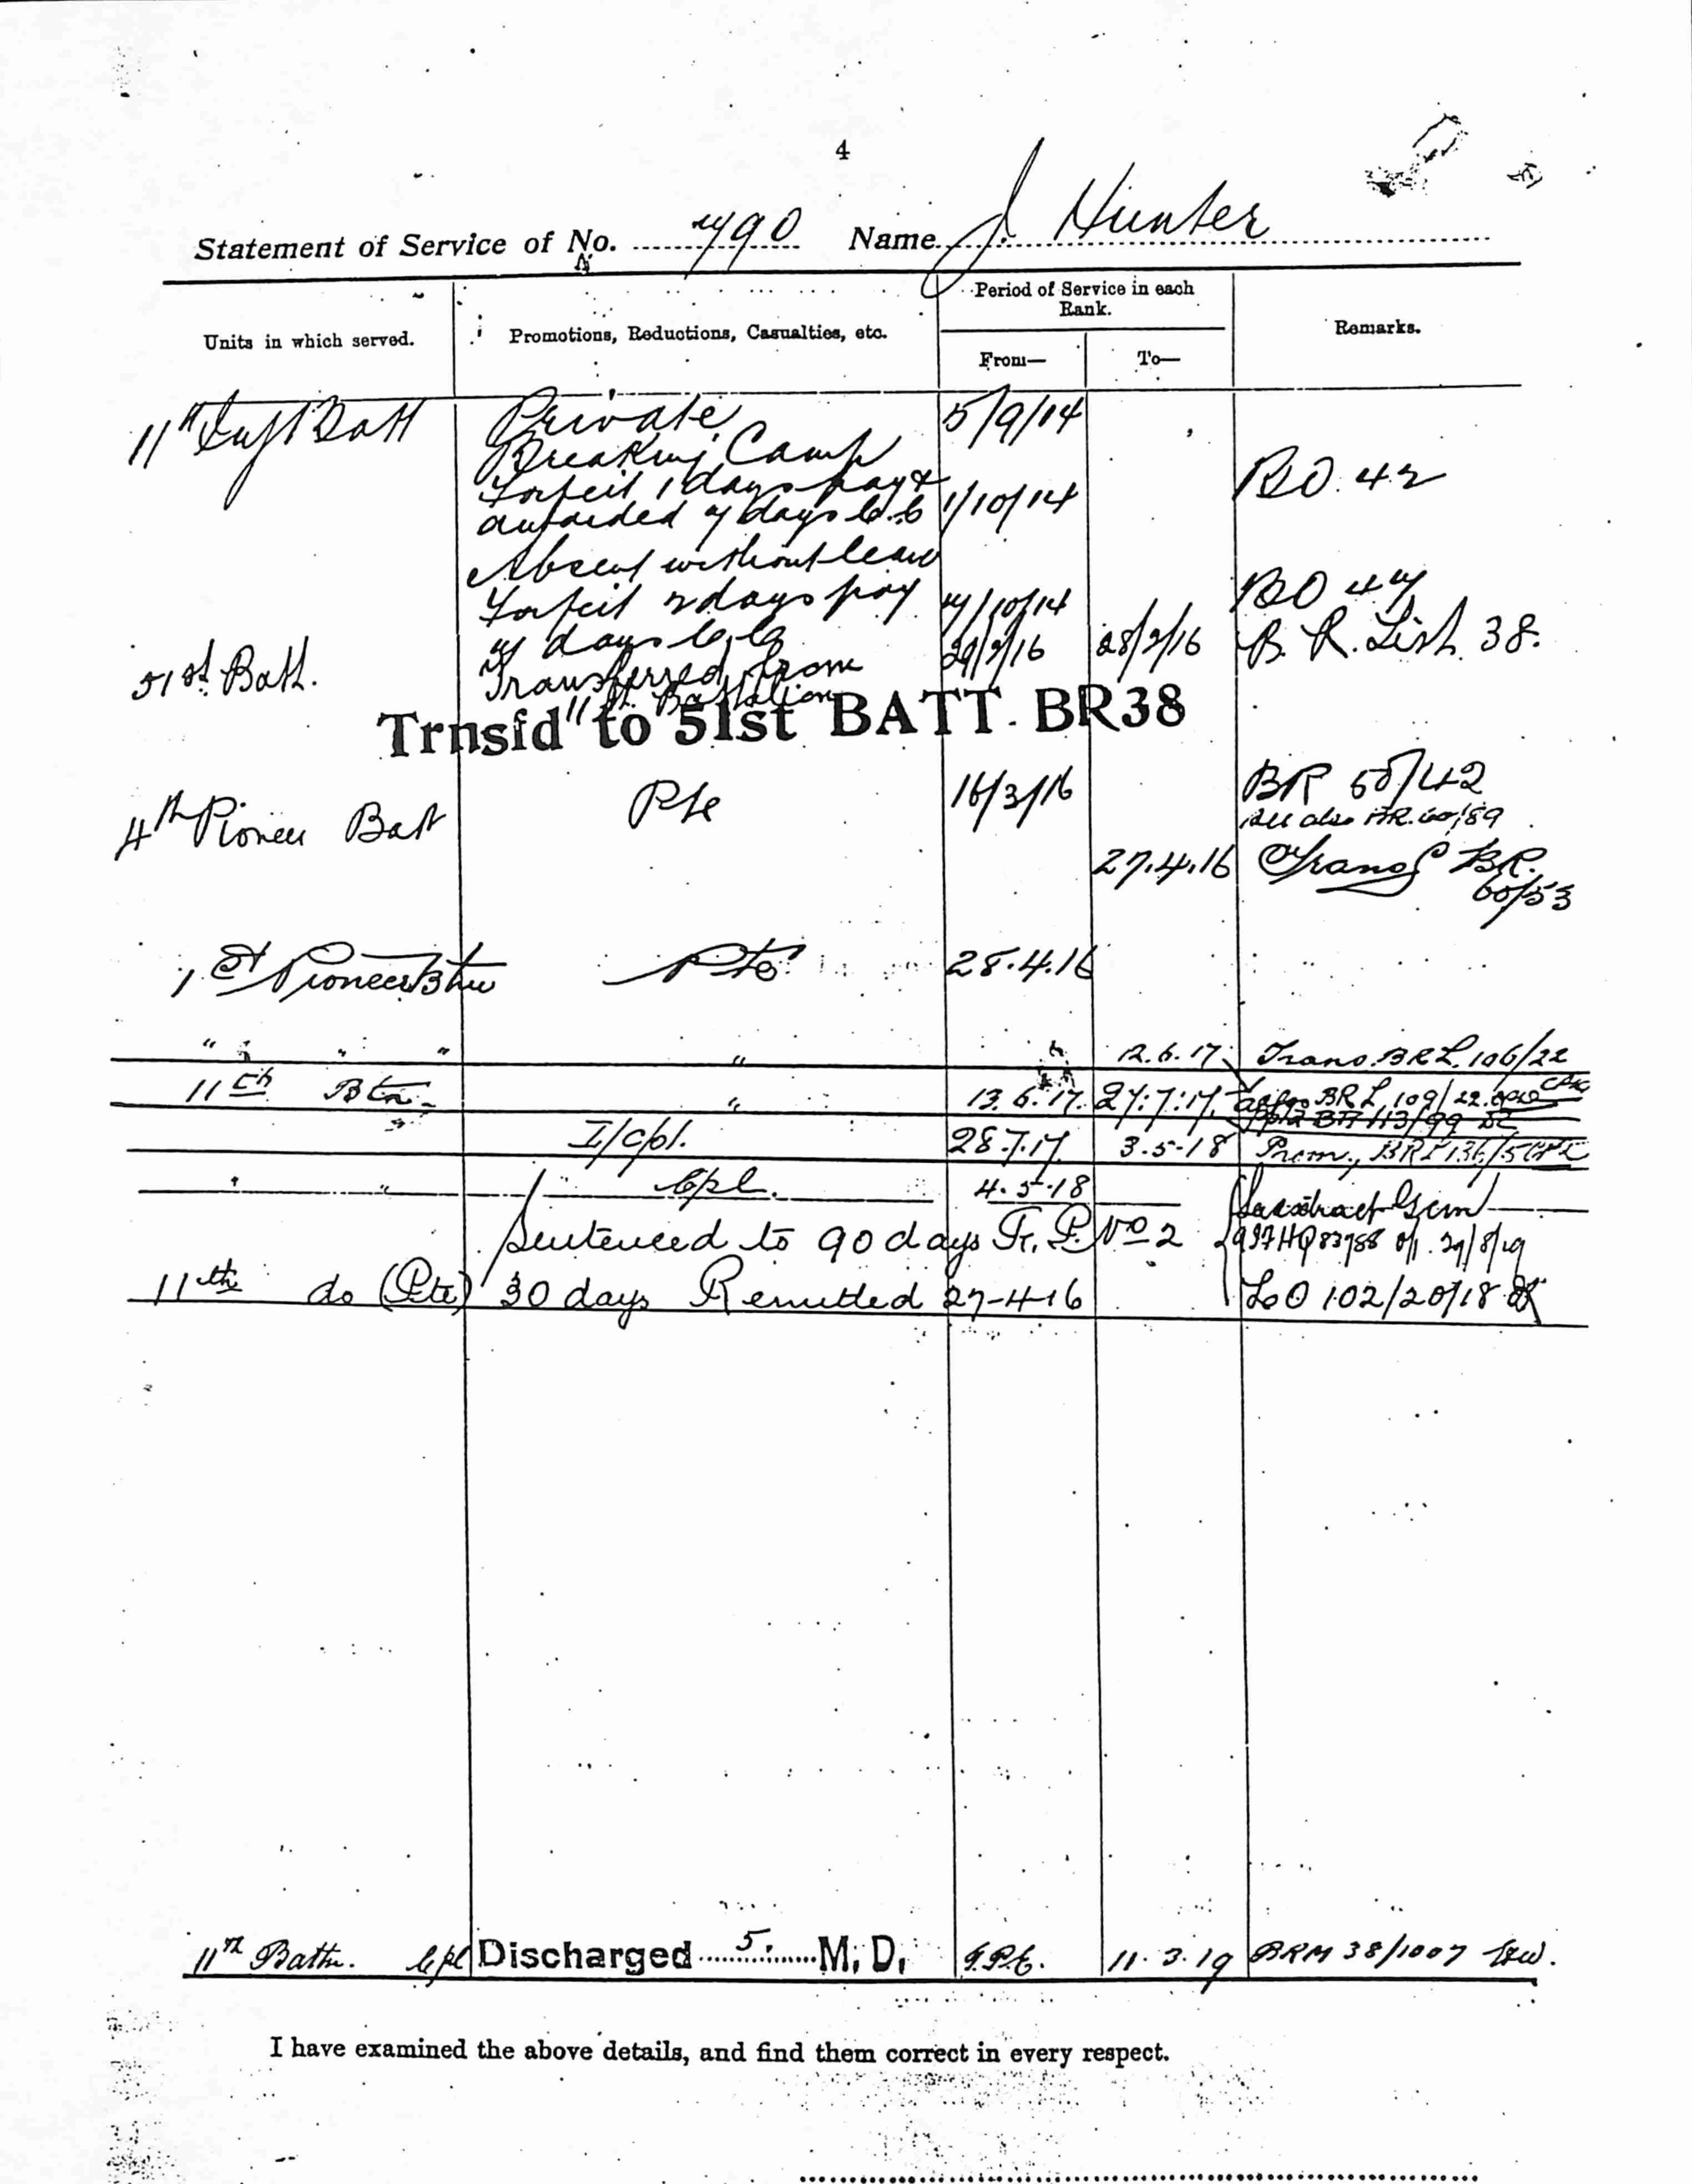 4
Statement of Service of No. 790 Name J. Hunter
Units in which served. Promotions, Reductions, Casualties, etc. Period of Service in each Rank. From— To— Remarks.
11th Inft Batt Private 5/9/14
Breaking Camp
Forfeit 1 days pay & BO. 42
awarded 7 days C.B 1/10/14
Absent without leave
Forfeit 2 days pay 7/10/14 BO 47
7 days C.B
51st Batt. Transferred from 29/2/16 28/2/16 B. R. List 38.
11th Battalion
Trnsfd to 51st BATT. BR38
4th Pioneer Batt Pte 16/3/16 BR 60/42
see also BR. 60/89
27.4.16 Transf BR. 60/53
1st Pioneer Btn Pte 28.4.16
" " " " 12.6.17 Trans. BRL. 106/22
11th Btn. " 13.6.17. 27:7:17. BRL 109/22
113/99
L/Cpl. 28.7.17 3.5.18 Prom., BRL 136/5
" " Cpl. 4.5.18
Sentenced to 90 days F. P. No 2
11th do (Pte) 30 days Remitted 27-4-16 LO 102/20/18
11th Battn. Cpl Discharged 5. M. D. 11.3.19 BRM 38/1007
I have examined the above details, and find them correct in every respect.